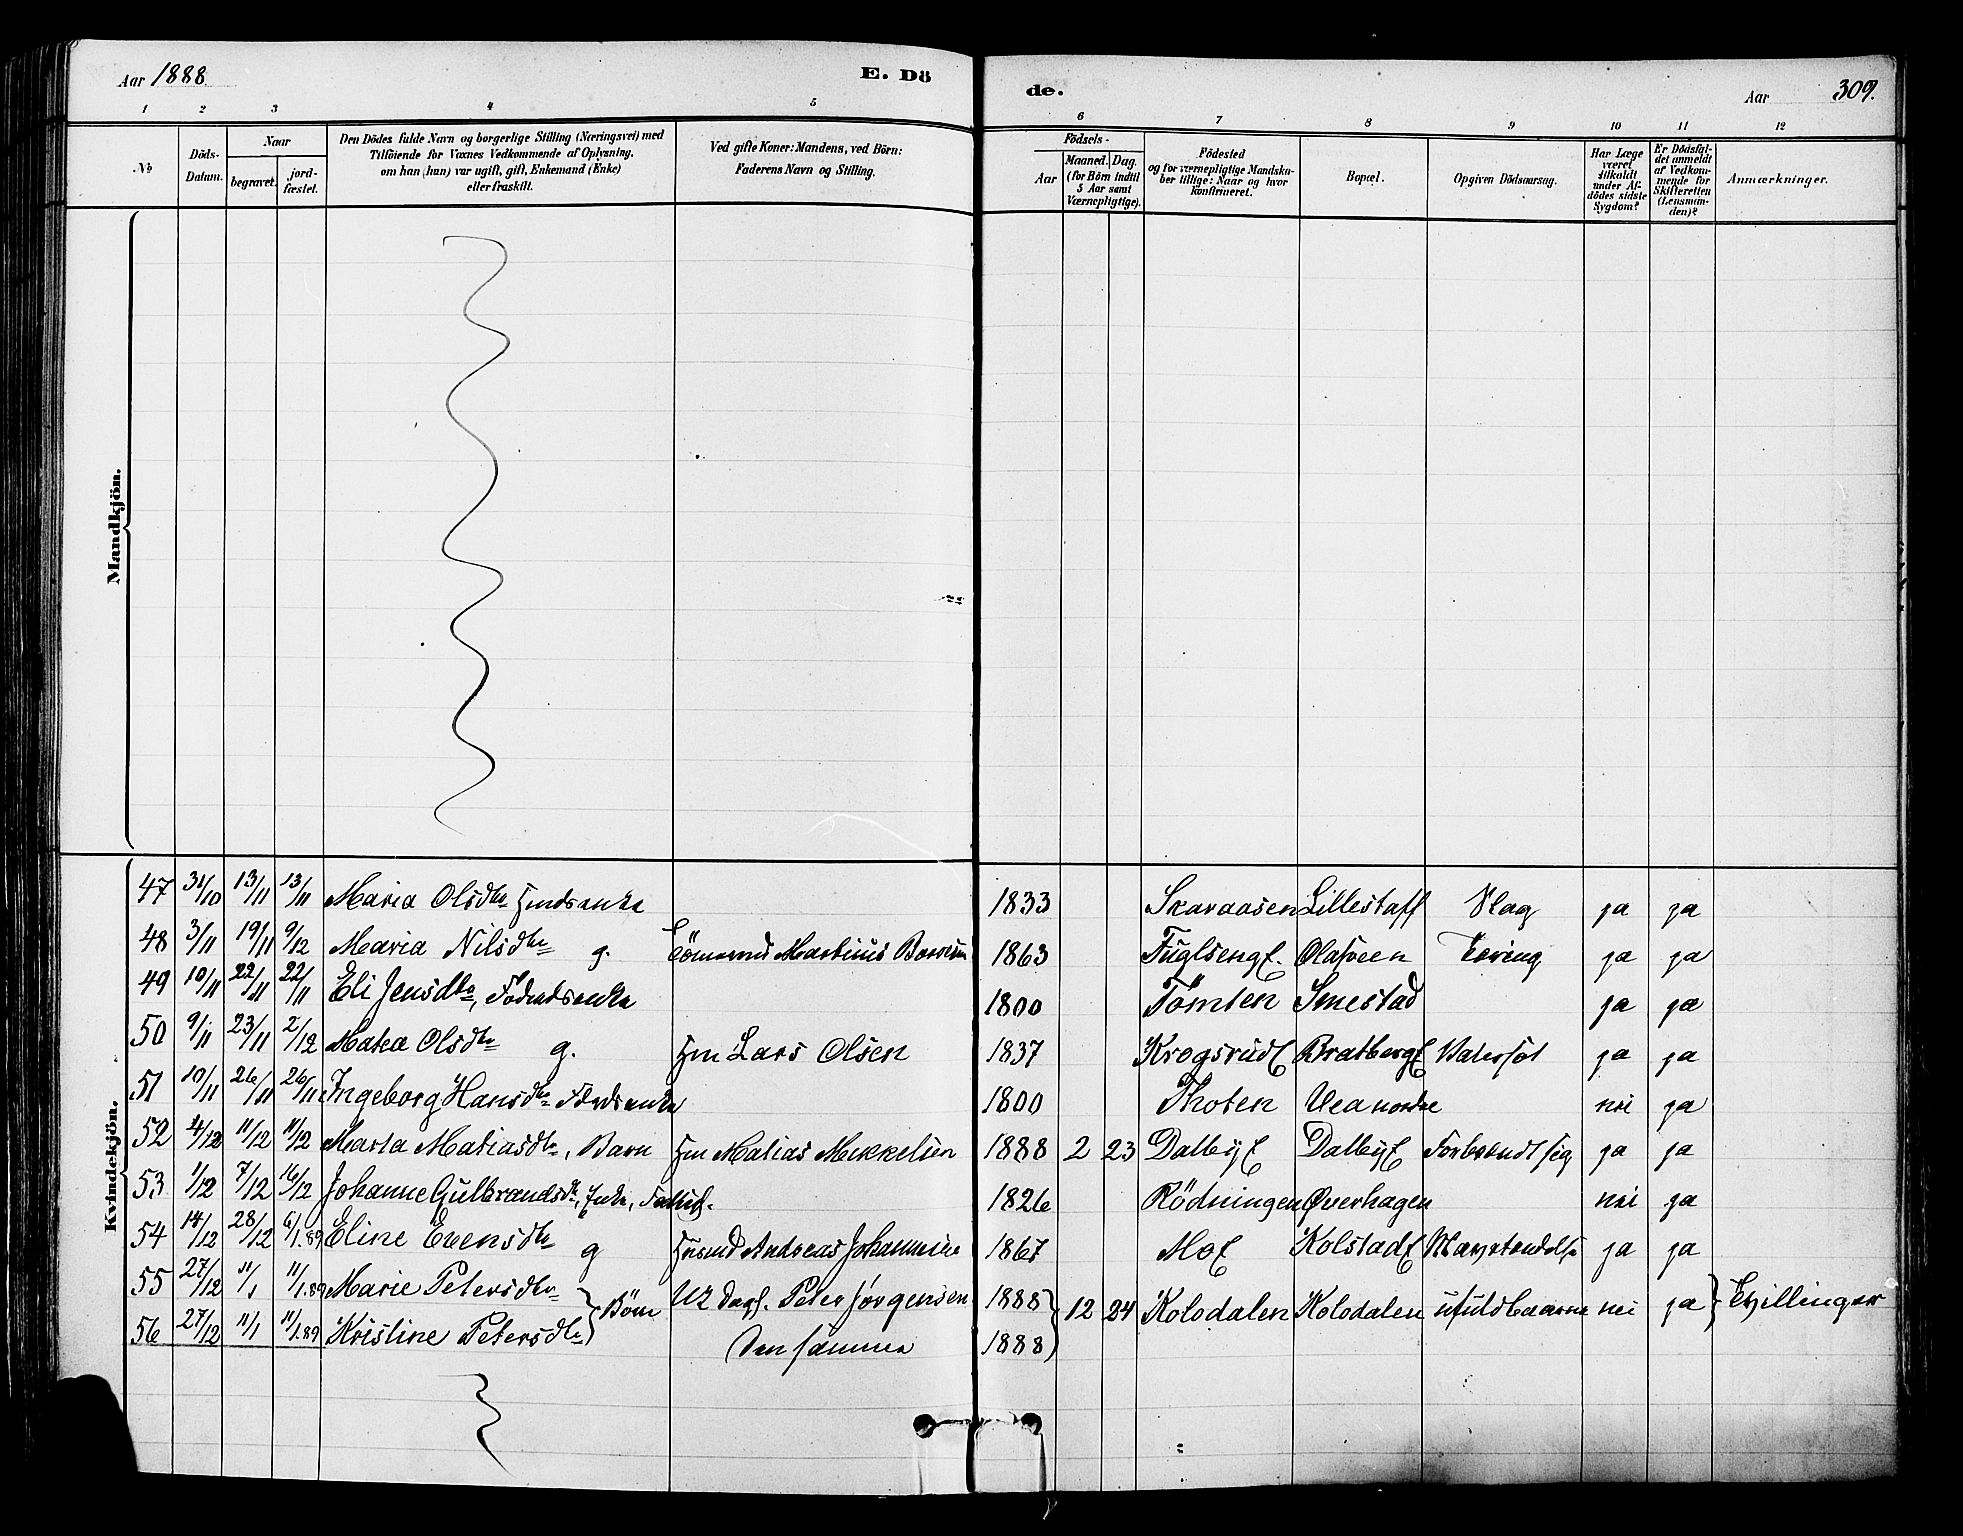 Aar 1888.
E. Dö
de.
Aar 309.
1 2 3 4 5 6 7 8 9 10 11 12
No
Döds-
Datum.
Naar
begravet.
jord-
fæstet.
Den Dödes fulde Navn og borgerlige Stilling (Næringsvei) med
Tilföiende for Voxnes Vedkommende af Oplysning,
om han (hun) var ugift, gift, Enkemand (Enke)
eller fraskilt.
Ved gifte Koner: Mandens, ved Börn:
Faderens Navn og Stilling.
Födsels-
Aar
Maaned. Dag.
(for Börn indtil
5 Aar samt
Værnepligtige).
Födested
og for værnepligtige Mandska-
ber tillige: Naar og hvor
konfirmeret.
Bopæl.
Opgiven Dödsaarsag.
Har Læge
været
tilkaldt
under Af-
dödes sidste
Sygdom?
Er Dödsfal-
det anmeldt
af Vedkom-
mende for
Skifteretten
(Lensman-
den)?
Anmærkninger.
Mandkjön.
Kvindekjön.
47 31/10 13/11 13/11 Maria Olsdtr 1833 Skaraasen Lillestaff Slag ja ja
48 3/11 19/11 9/12 Maria Nilsdtr g. Martinus 1863 Fuglseng Olafveen Tæring ja ja
49 10/11 22/11 22/11 Eli Jensdtr, 1800 Tömten Smestad ja ja
50 9/11 23/11 2/12 Matea Olsdtr g. Hm Lars Olsen 1837 Krogsrud Bratberg Vatersot ja ja
51 10/11 26/11 26/11 Ingeborg Hansdtr 1800 Thoten nordre nei ja
52 4/12 11/12 11/12 Marta Matiasdtr, Barn Hm Matias Mikkelsen 1888 2 23 Dalby Dalby Forbrændt sig ja ja
53 1/12 7/12 16/12 Johanne Gulbrandsdtr, Enke, 1826 Rödningen Øverhagen nei ja
54 14/12 28/12 6/1.89 Eline Evensdtr g Husmd Andreas Johannesen 1867 Mo Kolstad ja ja
55 27/12 11/1 11/1.89 Marie Petersdtr } Börn Peter Jørgensen 1888 } 12 24 Kolodalen Kolodalen ufuldbaarne nei ja } Tvillinger
56 27/12 11/1 11/1.89 Kristine Petersdtr Den samme 1888